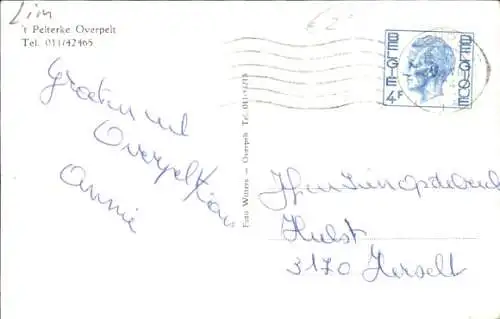 Lim
€2
't Pelterke Overpelt
Tel. 011/42465
Groeten uit
Overpelt
Annie
Foto Witters — Overpelt Tel. 011/41213
BELGIE
4F
BELGIQUE
Hulst
3170 Herselt